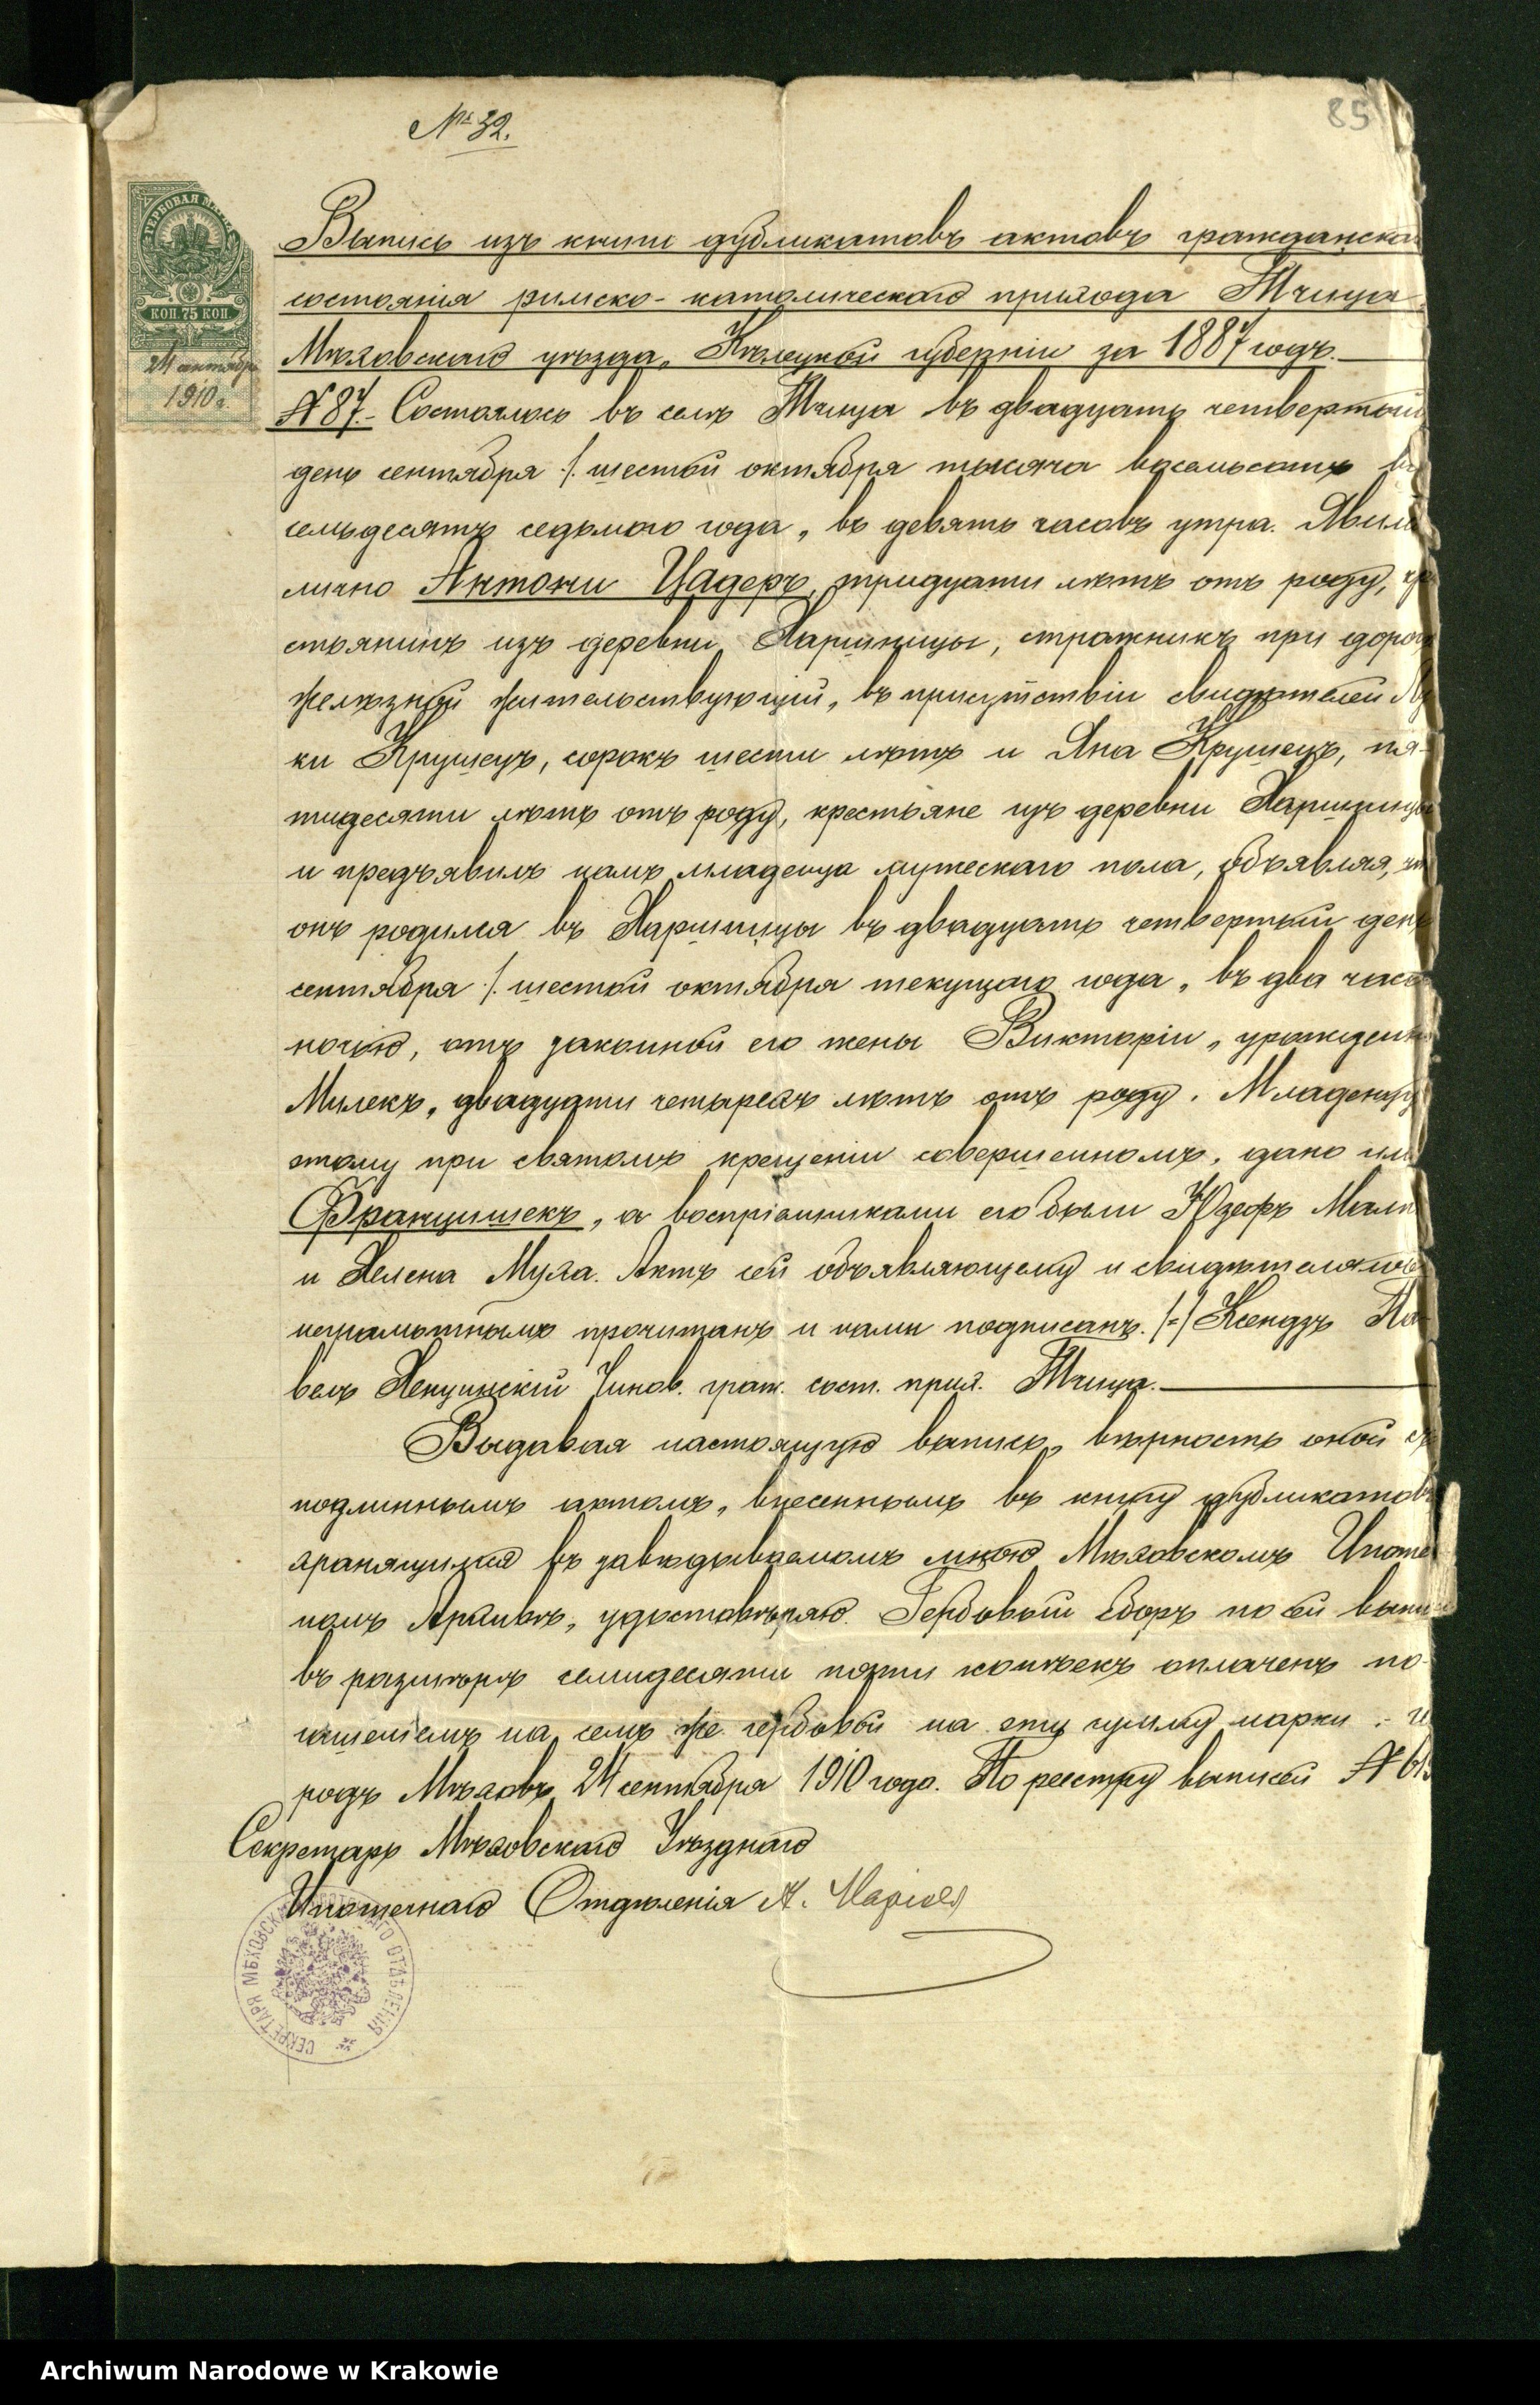 № 32.
85
ГЕРБОВАЯ МАРКА
КОП. 75 КОП.
24 сентября
1910 г.
Выпись изъ книги дубликатовъ актовъ гражданска
состоянія римско-католическаго прихода Тчица
Мѣховскаго уѣзда, Кѣлецкой губерніи за 1887 годъ.
№ 87. Состоялось въ селѣ Тчица въ двадцать четвертый
день сентября /. шестой октября тысяча восемьсотъ во
семьдесятъ седьмого года, въ девять часовъ утра. Явил
лично Антони Цадеръ, тридцати лѣтъ отъ роду, кре
стьянинъ изъ деревни Харшницы, стражникъ при доро
желѣзной жительствующій, въ присутствіи свидѣтелей Лу
ки Крушецъ, сорокъ шести лѣтъ и Яна Крушецъ, пя-
тидесяти лѣтъ отъ роду, крестьяне изъ деревни Харшницы
и предъявилъ намъ младенца мужескаго пола, объявляя, что
онъ родился въ Харшницы въ двадцать четвертый день
сентября /. шестой октября текущаго года, въ два часа
ночью, отъ законной его жены Викторіи, урожденн
Милекъ, двадцати четырехъ лѣтъ отъ роду. Младенцу
этому при святомъ крещеніи совершенномъ, дано имя
Францишекъ, а воспріемниками его были Юзефъ
и Хелена Муха. Актъ сей объявляющему и свидѣтелямъ
неграмотнымъ прочитанъ и нами подписанъ. /=/ Ксендзъ Па-
велъ Хенцинскій Чинов. граж. сост. прих. Тчица.
Выдавая настоящую выпись, вѣрность оной съ
подлиннымъ актомъ, внесеннымъ въ книгу дубликатовъ
хранящимся въ завѣдываемомъ мною Мѣховскомъ Ипоте
номъ Архивѣ, удостовѣряю. Гербовый сборъ по сей выпи
въ размѣрѣ семидесяти пяти копѣекъ оплаченъ по-
гашеніемъ на семъ же гербовой на эту сумму марки.
родъ Мѣховъ, 24 сентября 1910 года. По реестру выписей №
Секретарь Мѣховскаго Уѣзднаго
Ипотечнаго Отдѣленія
СЕКРЕТАРЯ МѢХОВСКАГО ИПОТЕЧНАГО ОТДѢЛЕНІЯ
Archiwum Narodowe w Krakowie